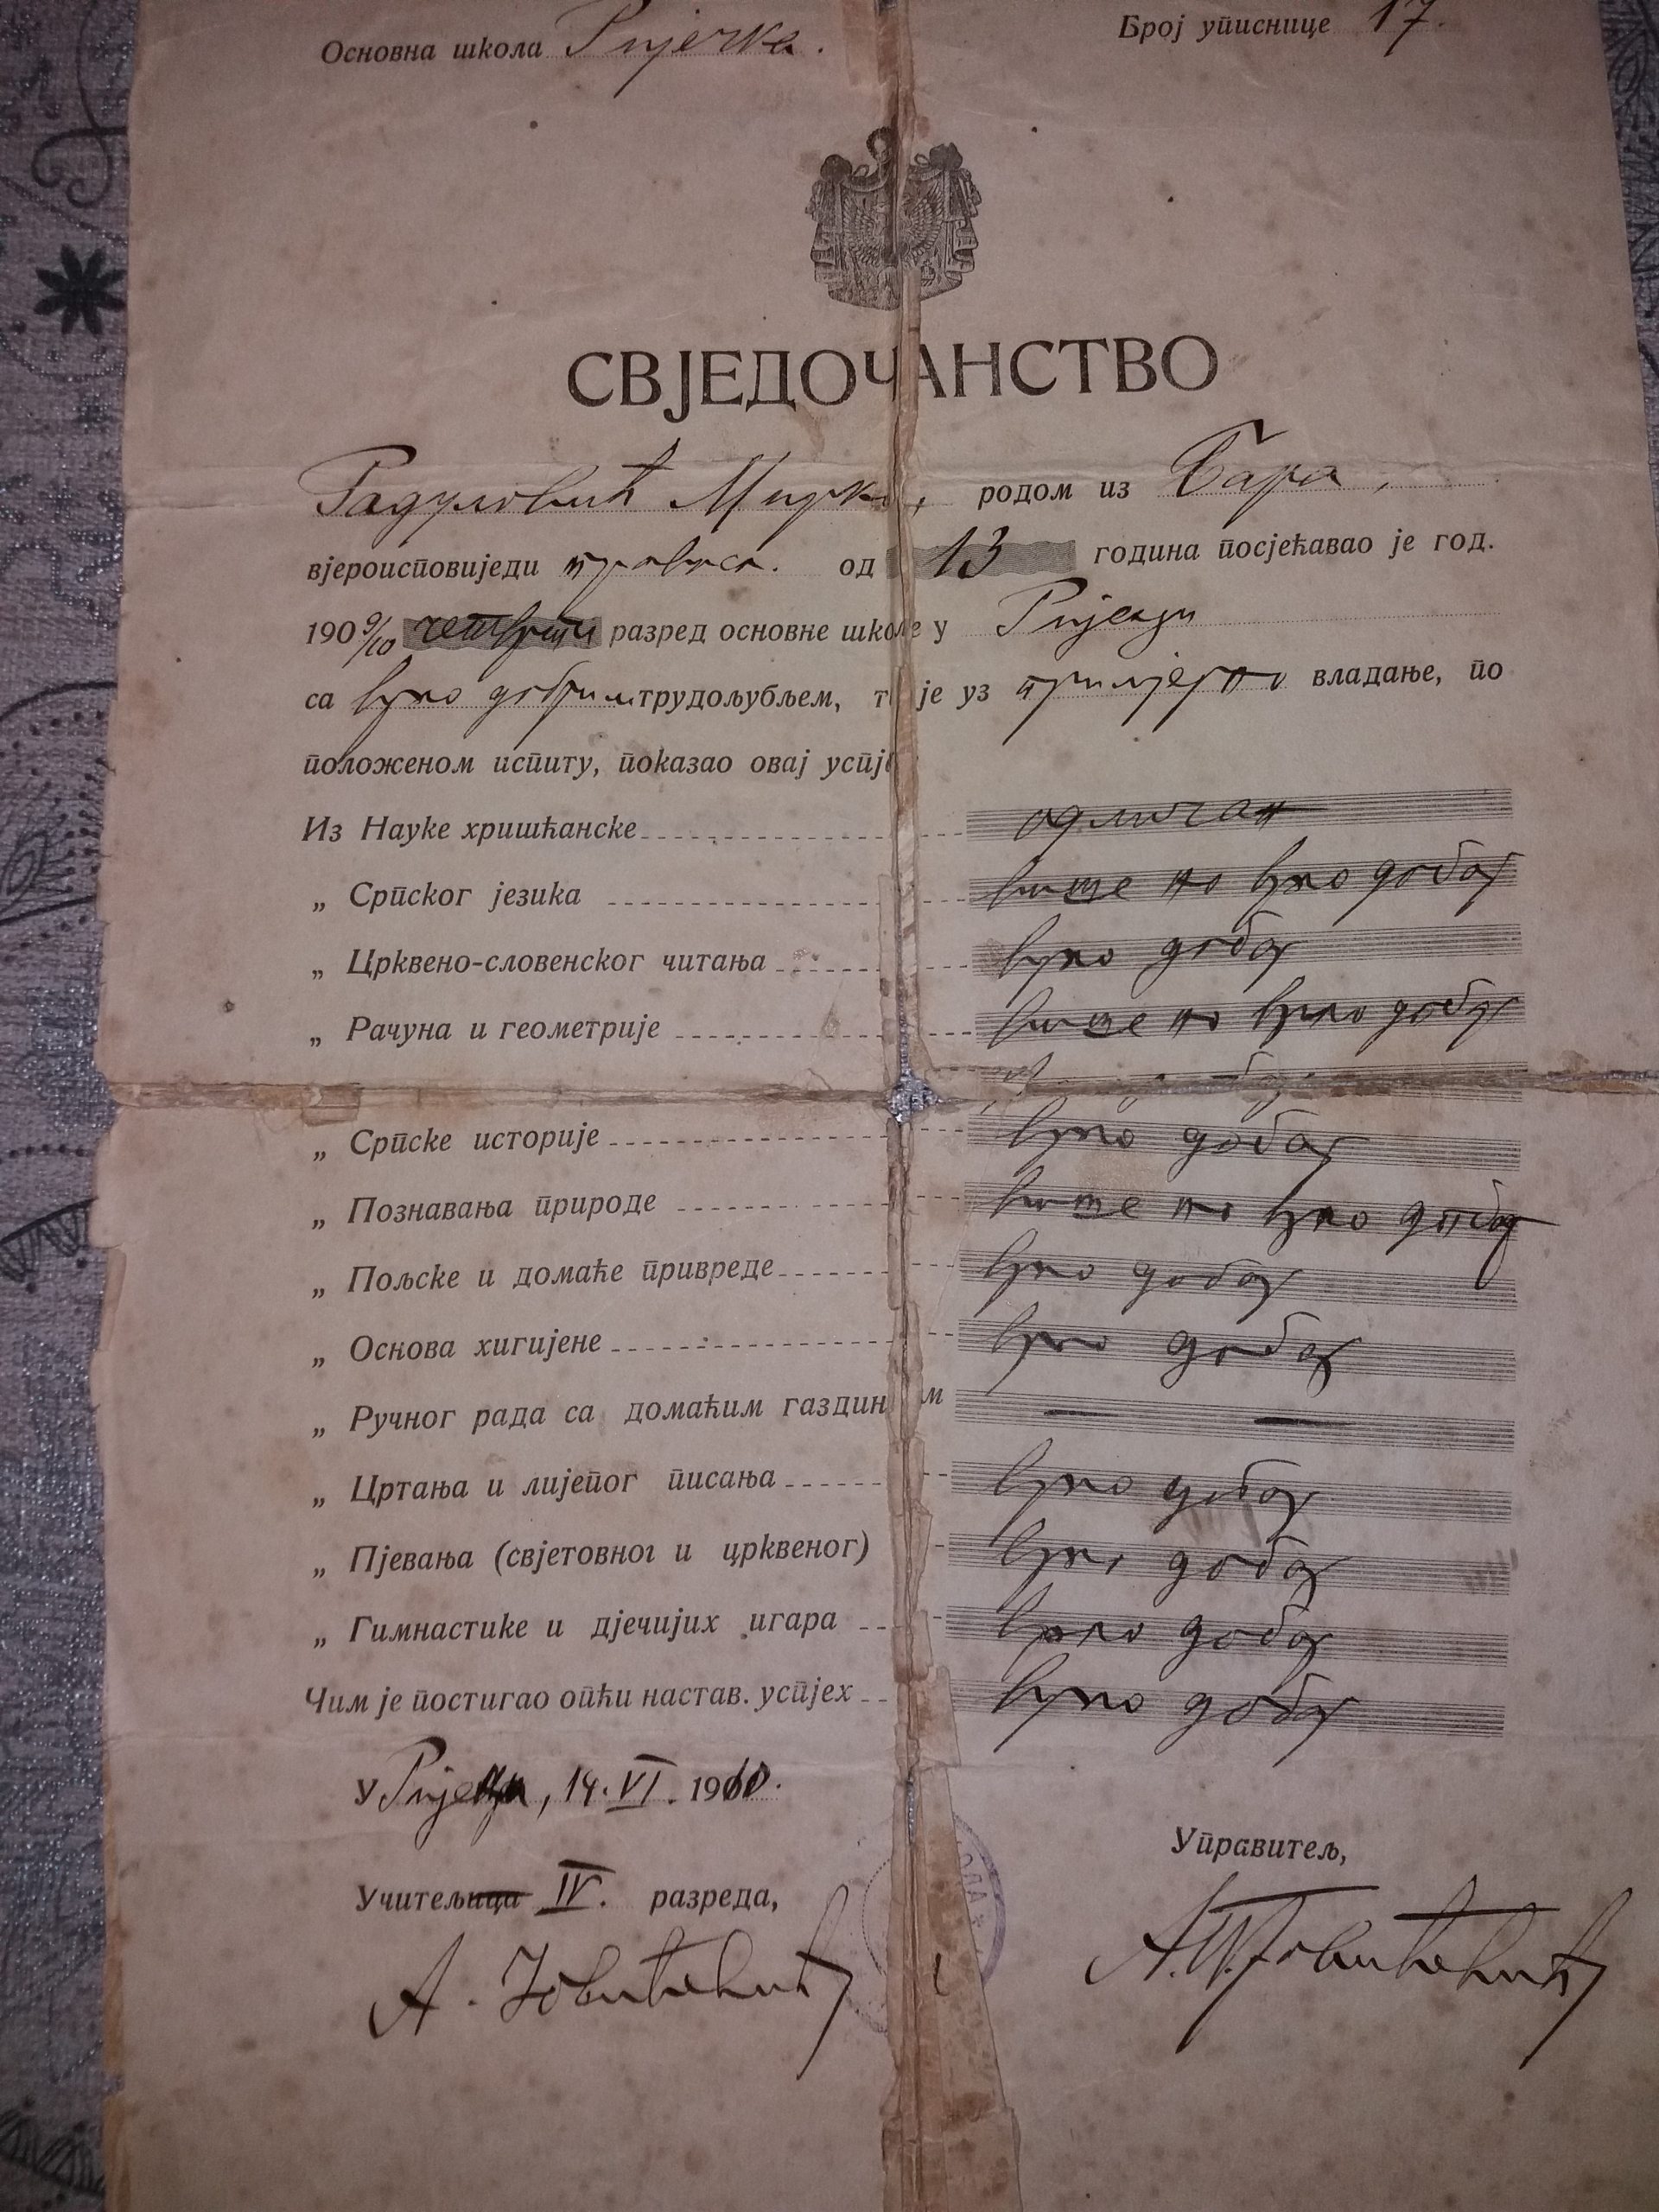 Основна школа Ријечка. Број уписнице 17.
СВЈЕДОЧАНСТВО
Радуловић Мирко, родом из Бара,
вјероисповиједи правосл. од 13 година посјећавао је год.
1909/10 четврти разред основне школе у Ријеци
са врло добрим трудољубљем, те је уз примјерно владање, по
положеном испиту, показао овај успје
Из Науке хришћанске одличан
„ Српског језика више но врло добар
„ Црквено-словенског читања врло добар
„ Рачуна и геометрије више но врло добар
„ Српске историје врло добар
„ Познавања природе више но врло добар
„ Пољске и домаће привреде врло добар
„ Основа хигијене врло добар
„ Ручног рада са домаћим газдин м — —
„ Цртања и лијепог писања врло добар
„ Пјевања (свјетовног и црквеног) врло добар
„ Гимнастике и дјечијих игара врло добар
Чим је постигао опћи настав. успјех врло добар
У Ријеци, 14. VI. 1910.
Управитељ,
Учитељица IV. разреда,
А. Јовићевић А. Јовићевић
ОЛА *